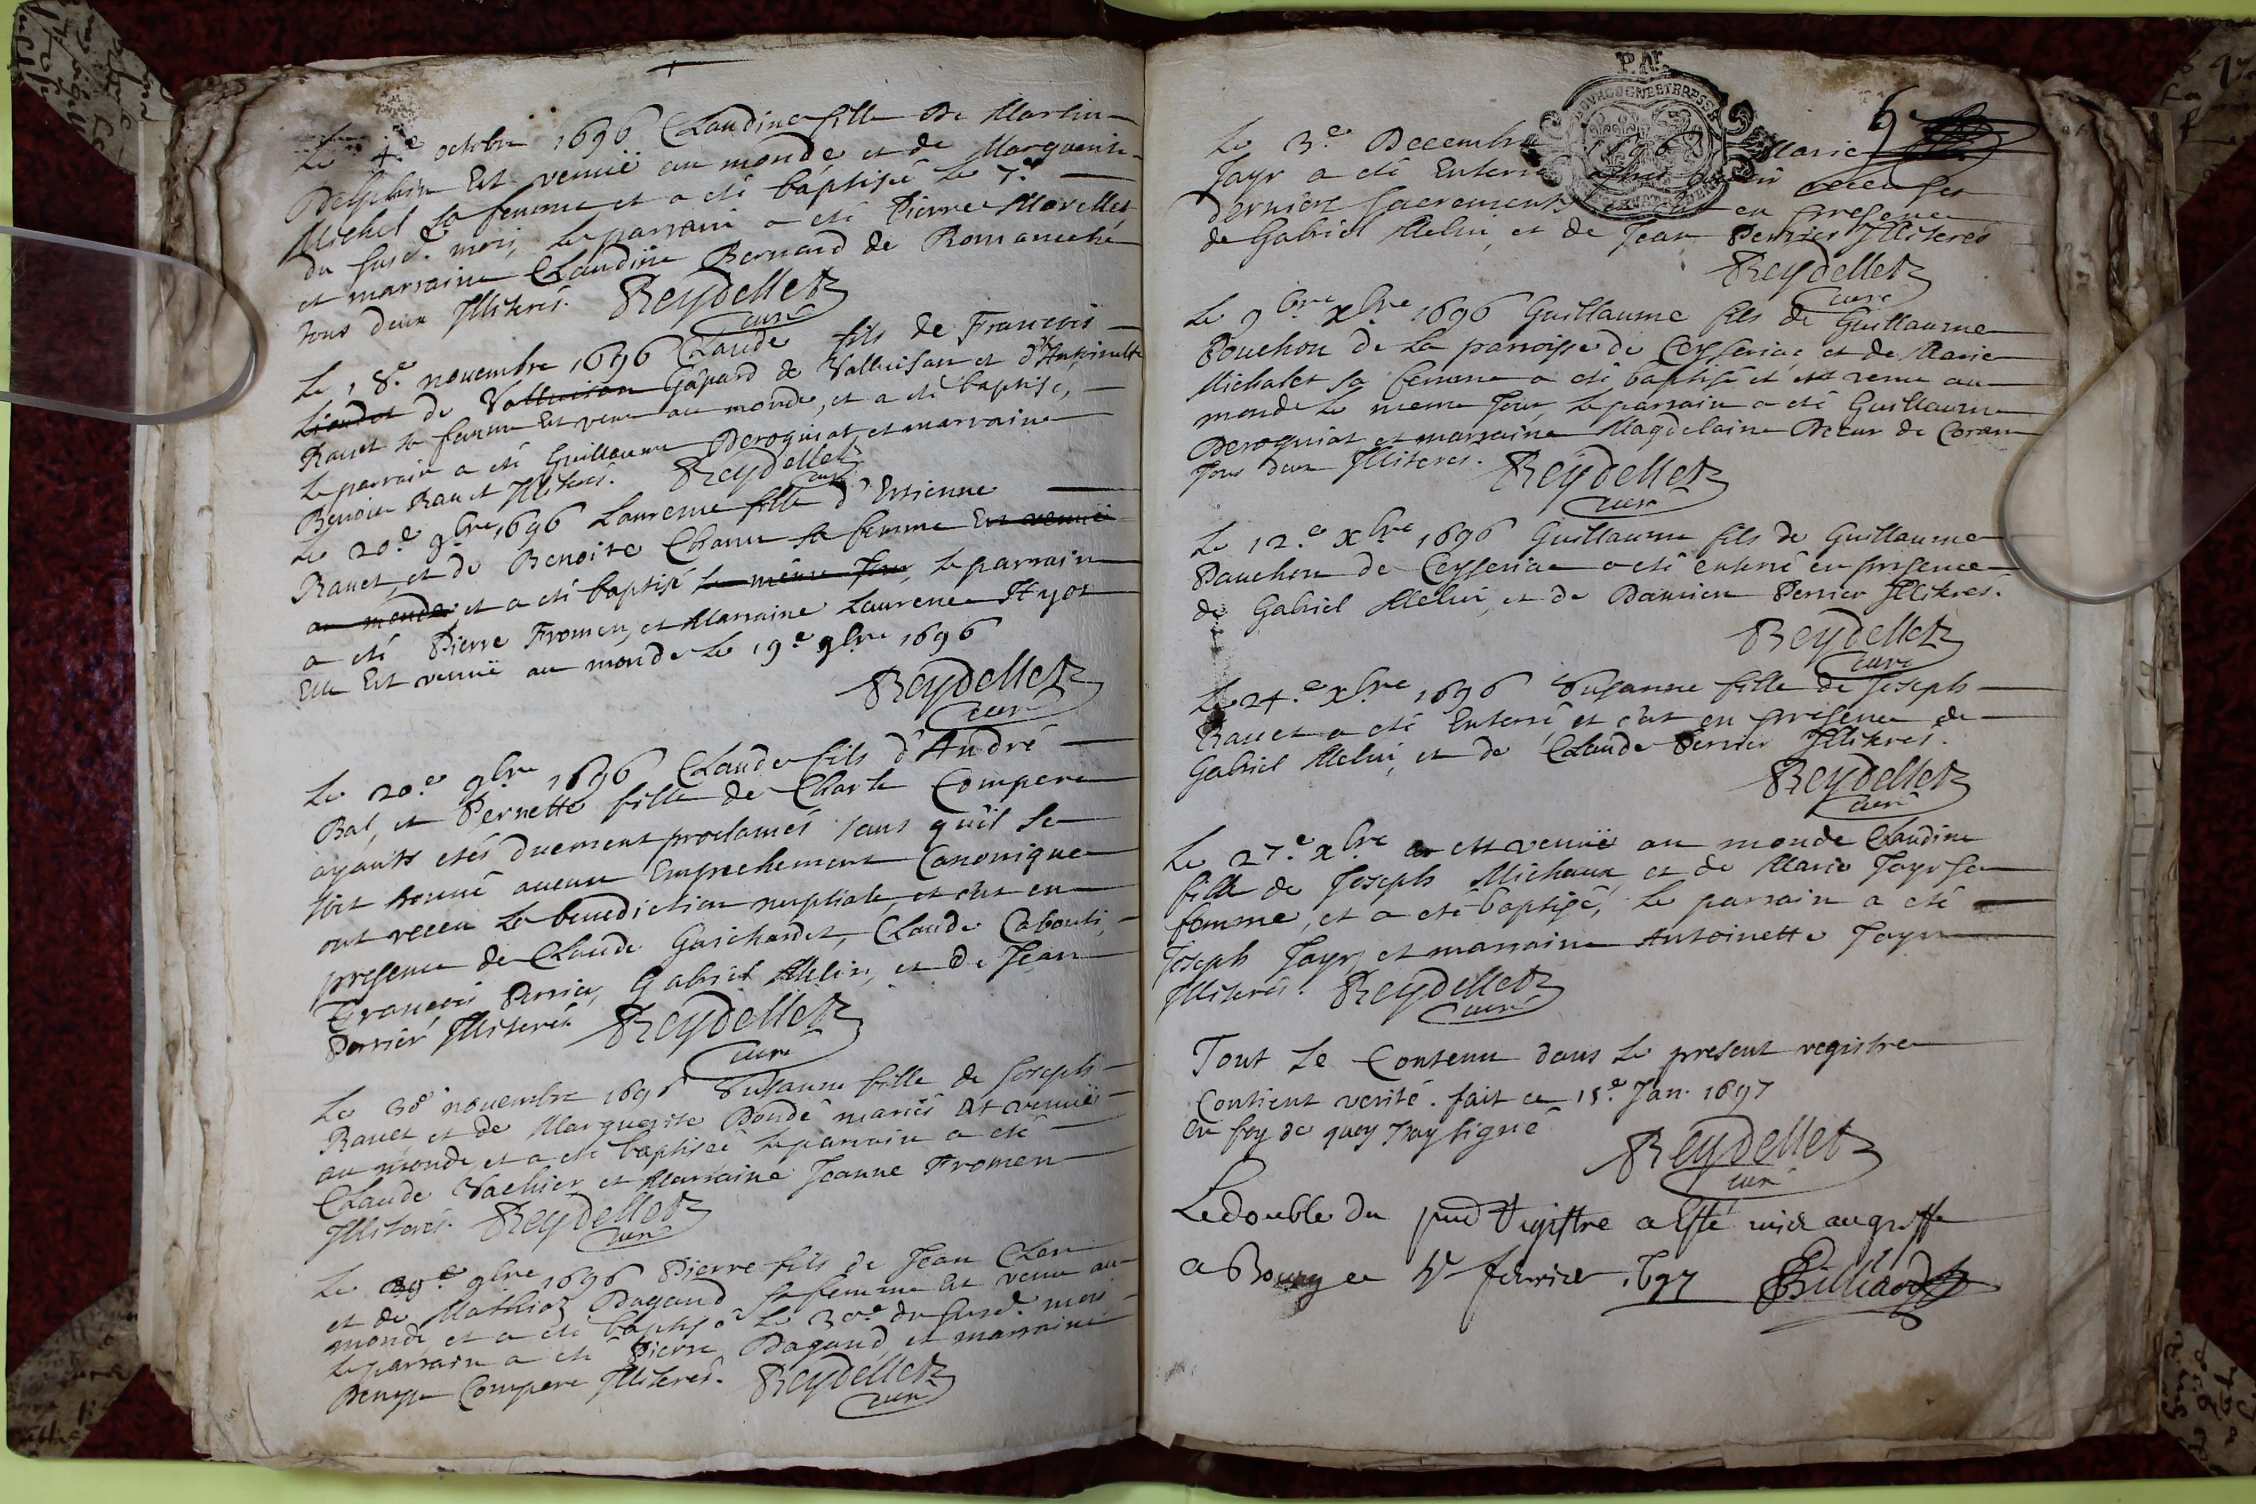 Le 4.e octobre 1696 Claudine fille De Martin
Delphin Est venuë au monde et de Marguerite
Michel sa femme et a eté baptisée Le 7.e
du susd. mois, Le parrain a eté Pierre Morellet
et marraine Claudine Bernard de Romaneche
tous deux Illiterés. Reydellet
curé
Le 18.e novembre 1696 Claude fils de François
de Valluisan Gaspard de Valluisan et d'Antoinette
Ravet sa femme Est venu au monde, et a eté baptisé,
Le parrain a eté Guillaume Deroquiat et marraine
Benoite Ravet Illiterés. Reydellet
curé
Le 20.e 9bre 1696 Laurence fille d'Estienne
Ravet, et de Benoite Chanu sa femme Est venuë
au monde et a eté baptisé Le même Jour, Le parrain
a eté Pierre Fromen, et Marraine Laurence Hyot
Elle Est venuë au monde Le 19.e 9bre 1696
Reydellet
curé
Le 20.e 9bre 1696 Claude fils d'André
Bal, et Pernette fille de Charle Compere
ayants etés duement proclamés sans qu'il se
soit trouvé aucun Empechement Canonique
ont receu La benediction nuptiale, et c'est en
presence de Claude Guichardet, Claude Cabouti,
François Perrier, Gabriel Melin, et de Jean
Perrier Illiterés Reydellet
curé
Le 30e novembre 1696 Susanne fille de Joseph
Ravet, et de Marguerite Dondé mariés Est venuë
au monde, et a eté baptisée Le parrain a eté
Claude Vachier et Marraine Jeanne Fromen
Illiterés. Reydellet
curé
Le 9bre 1696 Pierre fils de Jean Cler
et de Mathiaz Dagaud sa femme Est venu au
monde, et a eté baptisé Le 30.e du susd. mois
Le parrain a eté Pierre Dagaud, et marraine
Compere Illiterés. Reydellet
curé
P. Ar.
BOVRGOGNE ET BRESSE
Le 3.e Decembre 1696 Marie
Jayr a eté Enterré apres avoir receu ses
derniers sacrements en presence
de Gabriel Melin, et de Jean Perrier Illiterés
Reydellet
curé
Le 9 xbre 1696 Guillaume fils de Guillaume
Pouchon de La parroisse de Ceyseriac et de Marie
Michalet sa femme a eté baptisé et est venu au
monde Le meme Jour, Le parrain a eté Guillaume
Deroquiat et marraine Magdelaine de Coran
Tous deux Illiteres. Reydellet
curé
Le 12.e xbre 1696 Guillaume fils de Guillaume
Pauchon de Ceyseriac a eté enterré en presence
de Gabriel Melin, et de Damien Perrier Illiterés.
Reydellet
curé
Le 24.e xbre 1696 Susanne fille de Joseph
Ravet a eté Enterré et c'est en presence de
Gabriel Melin, et de Claude Perrier Illiterés.
Reydellet
curé
Le 27.e xbre est venuë au monde Claudine
fille de Joseph Michaux, et de Marie Jayr sa
femme, et a eté baptisé, Le parrain a eté
Joseph Jayr, et marraine Antoinette Jayr
Illiterés. Reydellet
curé
Tout Le Contenu dans Le present registre
Contient verité. fait ce 15.e Jan. 1697
En foy de quoy J'ay signé
Reydellet
curé
Le double du pnt Registre a esté mis au greffe
a Bourg ce fevrier 1697 Billiard